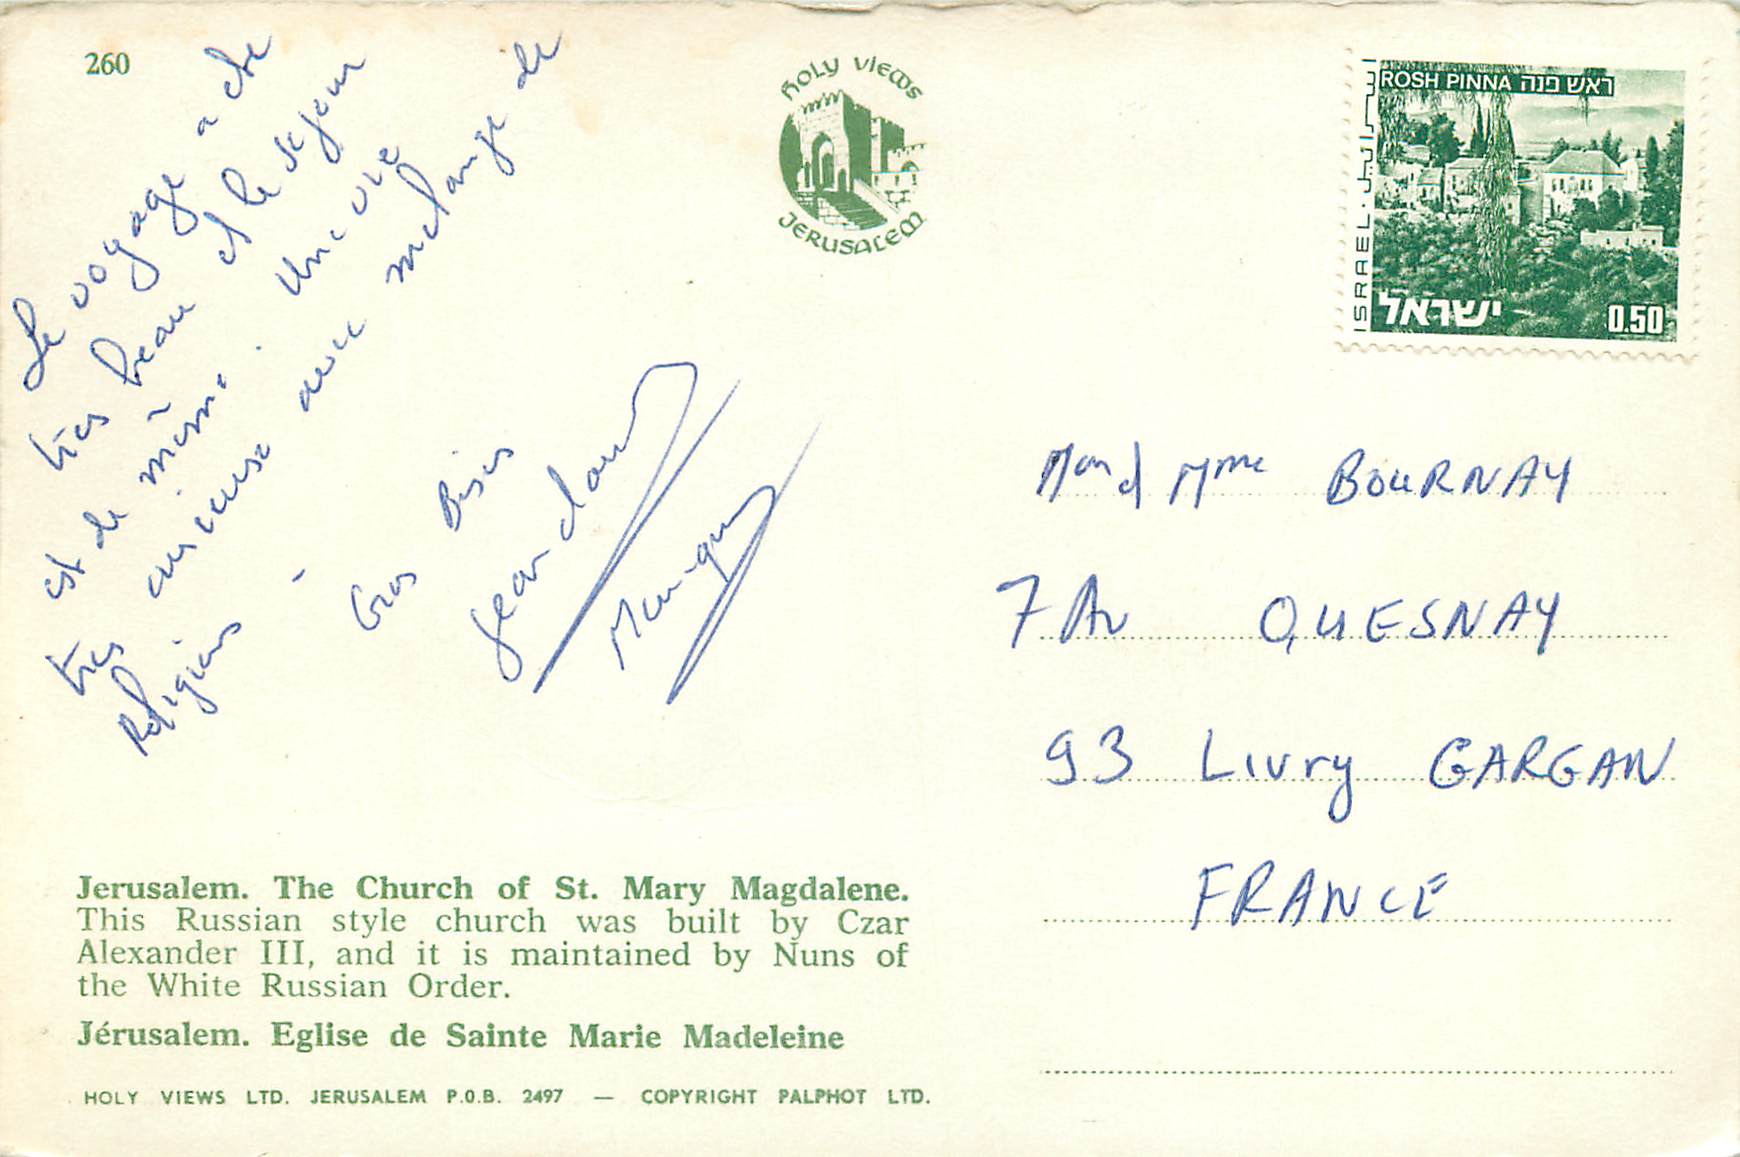 260
Le voyage a ete
très beau et le sejour
est de même. Une vie
tres curieuse avec melange de
Religions -
Gros Bisis
Jean
HOLY VIEWS
JERUSALEM
ROSH PINNA ראש פנה
ISRAEL · اسرائيل
ישראל
0.50
M et Mme BOURNAY
7 Av QUESNAY
93 Livry GARGAN
FRANCE
Jerusalem. The Church of St. Mary Magdalene.
This Russian style church was built by Czar
Alexander III, and it is maintained by Nuns of
the White Russian Order.
Jérusalem. Eglise de Sainte Marie Madeleine
HOLY VIEWS LTD. JERUSALEM P.O.B. 2497 — COPYRIGHT PALPHOT LTD.